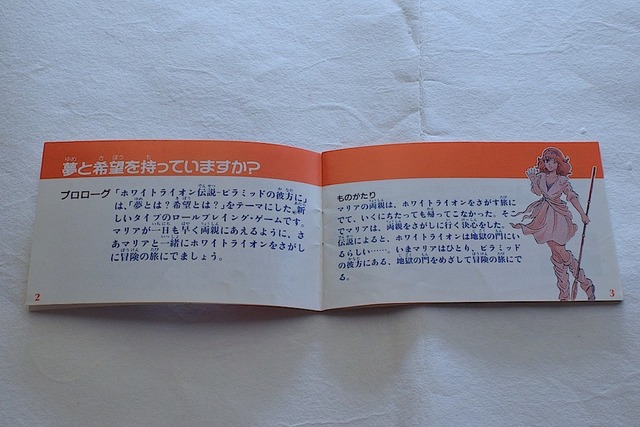 夢と希望を持っていますか?
プロローグ「ホワイトライオン伝説-ピラミッドの彼方に」
は、「夢とは?希望とは?」をテーマにした。新
しいタイプのロールプレイング・ゲームです。
マリアが一日も早く両親にあえるように、さ
あマリアと一緒にホワイトライオンをさがし
に冒険の旅にでましょう。
2
ものがたり
マリアの両親は、ホワイトライオンをさがす旅に
でて、いくにちたっても帰ってこなかった。そこ
でマリアは、両親をさがしに行く決心をした。
伝説によると、ホワイトライオンは地獄の門にい
るらしい……。いまマリアはひとり、ピラミッド
の彼方にある、地獄の門をめざして冒険の旅にで
る。
3